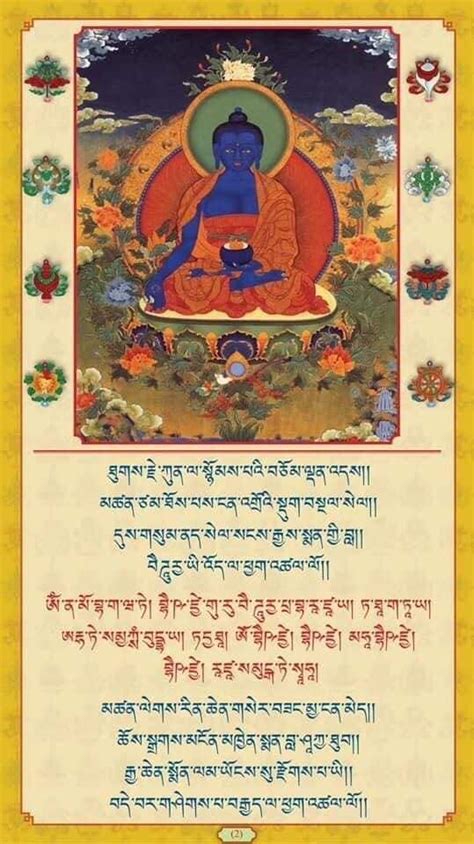 ཐུགས་རྗེ་ཀུན་ལ་སྙོམས་པའི་བཅོམ་ལྡན་འདས།།
མཚན་ཙམ་ཐོས་པས་ངན་འགྲོའི་སྡུག་བསྔལ་སེལ།།
དུས་གསུམ་ནད་སེལ་སངས་རྒྱས་སྨན་གྱི་བླ།།
བཻ་ཌཱུརྱ་ཡི་འོད་ལ་ཕྱག་འཚལ་ལོ།།
ༀ་ན་མོ་བྷ་ག་ཝ་ཏེ། བྷཻ་ཥ་ཛྱེ་གུ་རུ་བཻ་ཌཱུརྱ་པྲ་བྷ་རཱ་ཛཱ་ཡ། ཏ་ཐཱ་ག་ཏཱ་ཡ།
ཨརྷ་ཏེ་སམྱཀྶཾ་བུདྡྷཱ་ཡ། ཏདྱ་ཐཱ། ཨོཾ་བྷཻ་ཥ་ཛྱེ། བྷཻ་ཥ་ཛྱེ། མ་ཧཱ་བྷཻ་ཥ་ཛྱེ།
བྷཻ་ཥ་ཛྱེ། རཱ་ཛཱ་སམུངྒ་ཏེ་སྭཱ་ཧཱ།
མཚན་ལེགས་རིན་ཆེན་གསེར་བཟང་མྱ་ངན་མེད།།
ཆོས་སྒྲགས་མངོན་མཁྱེན་སྨན་བླ་ཤཱཀྱ་ཐུབ།།
རྒྱ་ཆེན་སྨོན་ལམ་ཡོངས་སུ་རྫོགས་པ་ཡི།།
བདེ་བར་གཤེགས་པ་བརྒྱད་ལ་ཕྱག་འཚལ་ལོ།།
(2)